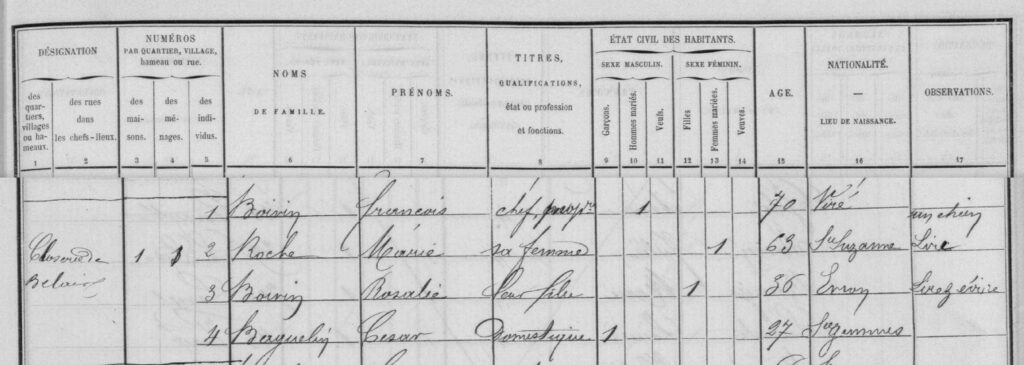 DÉSIGNATION
des quar- tiers, villages ou ha- meaux.
des rues dans les chefs-lieux.
NUMÉROS
PAR QUARTIER, VILLAGE,
hameau ou rue.
des mai- sons.
des mé- nages.
des indi- vidus.
NOMS
DE FAMILLE.
PRÉNOMS.
TITRES,
QUALIFICATIONS,
état ou profession
et fonctions.
ÉTAT CIVIL DES HABITANTS.
SEXE MASCULIN. SEXE FÉMININ.
Garçons. Hommes mariés. Veufs. Filles Femmes mariées. Veuves.
AGE.
NATIONALITÉ.
—
LIEU DE NAISSANCE.
OBSERVATIONS.
1 2 3 4 5 6 7 8 9 10 11 12 13 14 15 16 17
1 Boivin francois chef, propre 1 70 Viré un chien
Closerie de 1 1 2 Roche Marie sa femme 1 63 Ste Suzanne Lire
Belair 3 Boivin Rosalie leur fille 1 36 Evron Lire & écrire
4 César Domestique 1 27